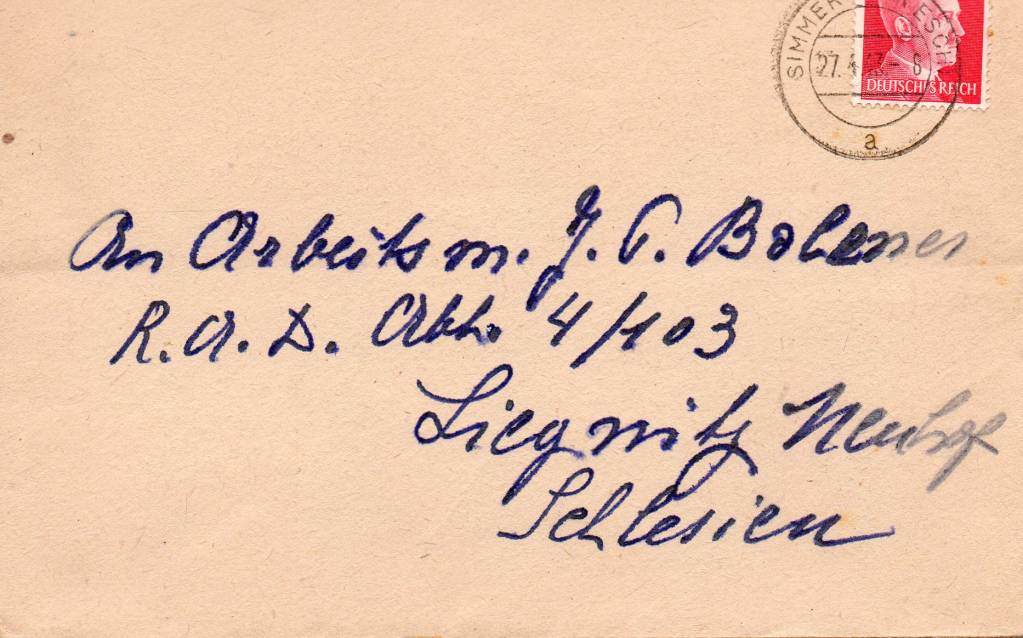 SIMMER ESCH
27.4.43-8
a
DEUTSCHES REICH
An Arbeitsm. J. P.
R. A. D. Abt. 4/103
Liegnitz Neuhof
Schlesien